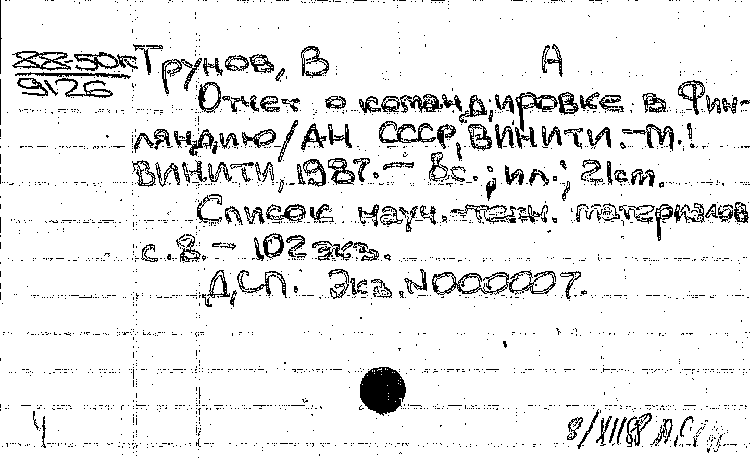 88-50к Трунов, В А
9126
Отчет о командировке в Фин-
ляндию/АН СССР, ВИНИТИ.-М.:
ВИНИТИ, 1987.- 8с.; ил.; 21cm.
Список науч.-техн. материалов
с.8.- 102 экз.
ДСП. Экз. N000007.
Ч
8/XII88